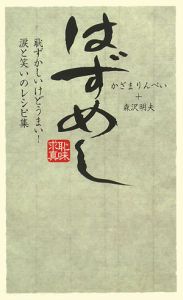 はずめし
恥ずかしいけどうまい！
涙と笑いのレシピ集
かざまりんぺい
+
森沢明夫
恥味
求真